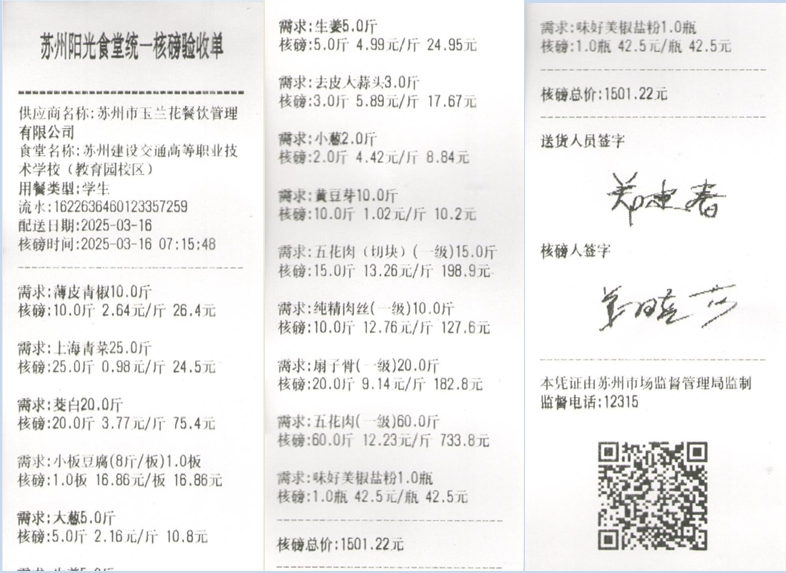 苏州阳光食堂统一核磅验收单
供应商名称:苏州市玉兰花餐饮管理
有限公司
食堂名称:苏州建设交通高等职业技
术学校（教育园校区）
用餐类型:学生
流水:1622636460123357259
配送日期:2025-03-16
核磅时间:2025-03-16 07:15:48
需求:薄皮青椒10.0斤
核磅:10.0斤 2.64元/斤 26.4元
需求:上海青菜25.0斤
核磅:25.0斤 0.98元/斤 24.5元
需求:茭白20.0斤
核磅:20.0斤 3.77元/斤 75.4元
需求:小板豆腐(8斤/板)1.0板
核磅:1.0板 16.86元/板 16.86元
需求:大葱5.0斤
核磅:5.0斤 2.16元/斤 10.8元
需求:生姜5.0斤
核磅:5.0斤 4.99元/斤 24.95元
需求:去皮大蒜头3.0斤
核磅:3.0斤 5.89元/斤 17.67元
需求:小葱2.0斤
核磅:2.0斤 4.42元/斤 8.84元
需求:黄豆芽10.0斤
核磅:10.0斤 1.02元/斤 10.2元
需求:五花肉（切块）(一级)15.0斤
核磅:15.0斤 13.26元/斤 198.9元
需求:纯精肉丝(一级)10.0斤
核磅:10.0斤 12.76元/斤 127.6元
需求:扇子骨(一级)20.0斤
核磅:20.0斤 9.14元/斤 182.8元
需求:五花肉(一级)60.0斤
核磅:60.0斤 12.23元/斤 733.8元
需求:味好美椒盐粉1.0瓶
核磅:1.0瓶 42.5元/瓶 42.5元
核磅总价:1501.22元
需求:味好美椒盐粉1.0瓶
核磅:1.0瓶 42.5元/瓶 42.5元
核磅总价:1501.22元
送货人员签字
核磅人签字
本凭证由苏州市场监督管理局监制
监督电话:12315